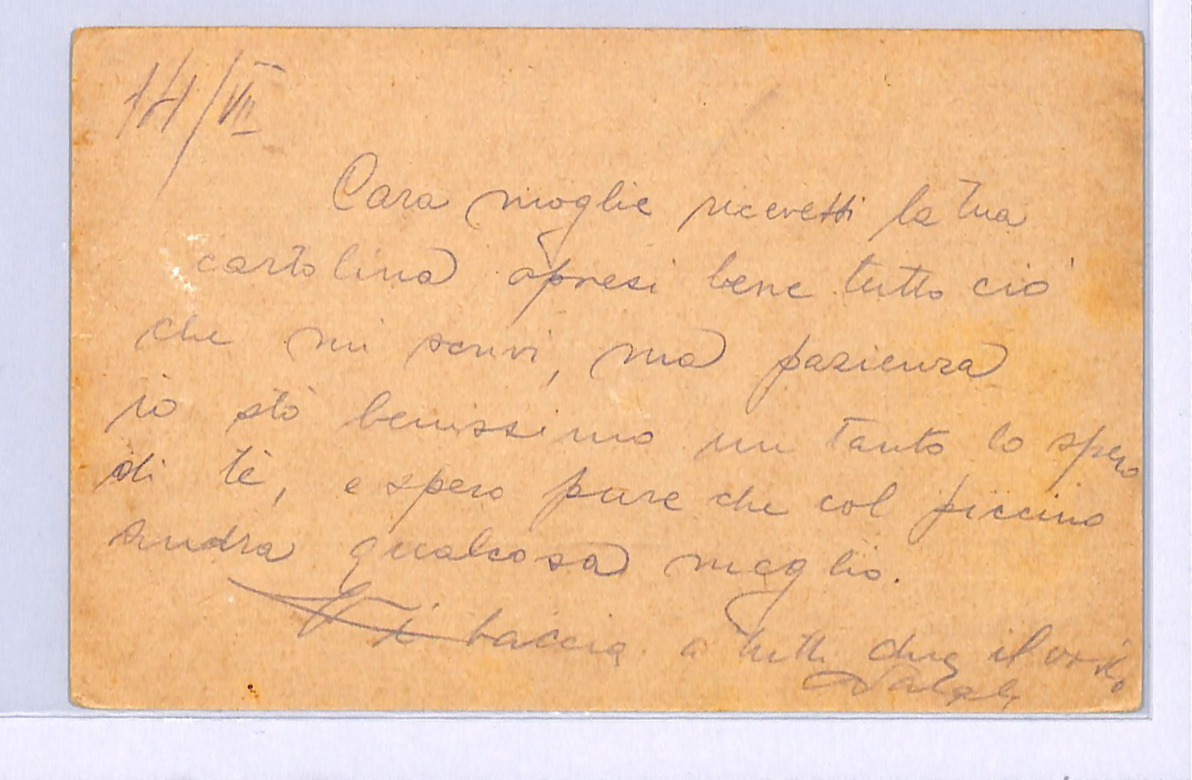 14/VIII
Cara moglie ricevetti la tua
cartolina apresi bene tutto ciò
che mi scrivi, ma pazienza
io stò benissimo un tanto lo spero
di tè, e spero pure che col piccino
andra qualcosa meglio.
Vi baccia a tutti due il vostro